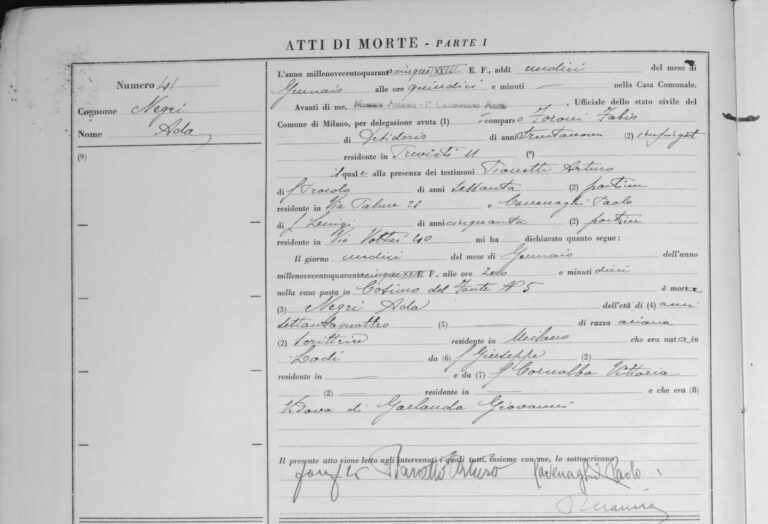 ATTI DI MORTE - PARTE I
Numero 41
Cognome Negri
Nome Ada
(9)
L'anno millenovecentoquarantacinque XXIII E. F., addì undici del mese di
Gennaio alle ore quindici e minuti — nella Casa Comunale.
Avanti di me, Ufficiale dello stato civile del
Comune di Milano, per delegazione avuta (1) è comparso Foroni Fabio
di Desiderio di anni trentanove (2) impiegat
residente in 11 (*)
il quale alla presenza dei testimoni Arturo
di f di anni settanta (2) portin
residente in Via 28 e Cavenaghi Paolo
di f Luigi di anni cinquanta (2) portin
residente in Via 40 mi ha dichiarato quanto segue:
Il giorno undici del mese di Gennaio dell'anno
millenovecentoquarantacinque XXIII E. F., alle ore zero e minuti dieci
nella casa posta in Cosimo del Fante N° 5 è morta
(3) Negri Ada dell'età di (4) anni
settantaquattro (5) — di razza ariana
(2) scrittrice residente in Milano che era nata in
Lodi da (6) f Giuseppe (2) —
residente in — e da (7) f Cornalba Vittoria
(2) — residente in — e che era (8)
Vedova di Garlanda Giovanni
Il presente atto viene letto agli intervenuti i quali tutti, insieme con me, lo sottoscrivono
Arturo Cavenaghi Paolo